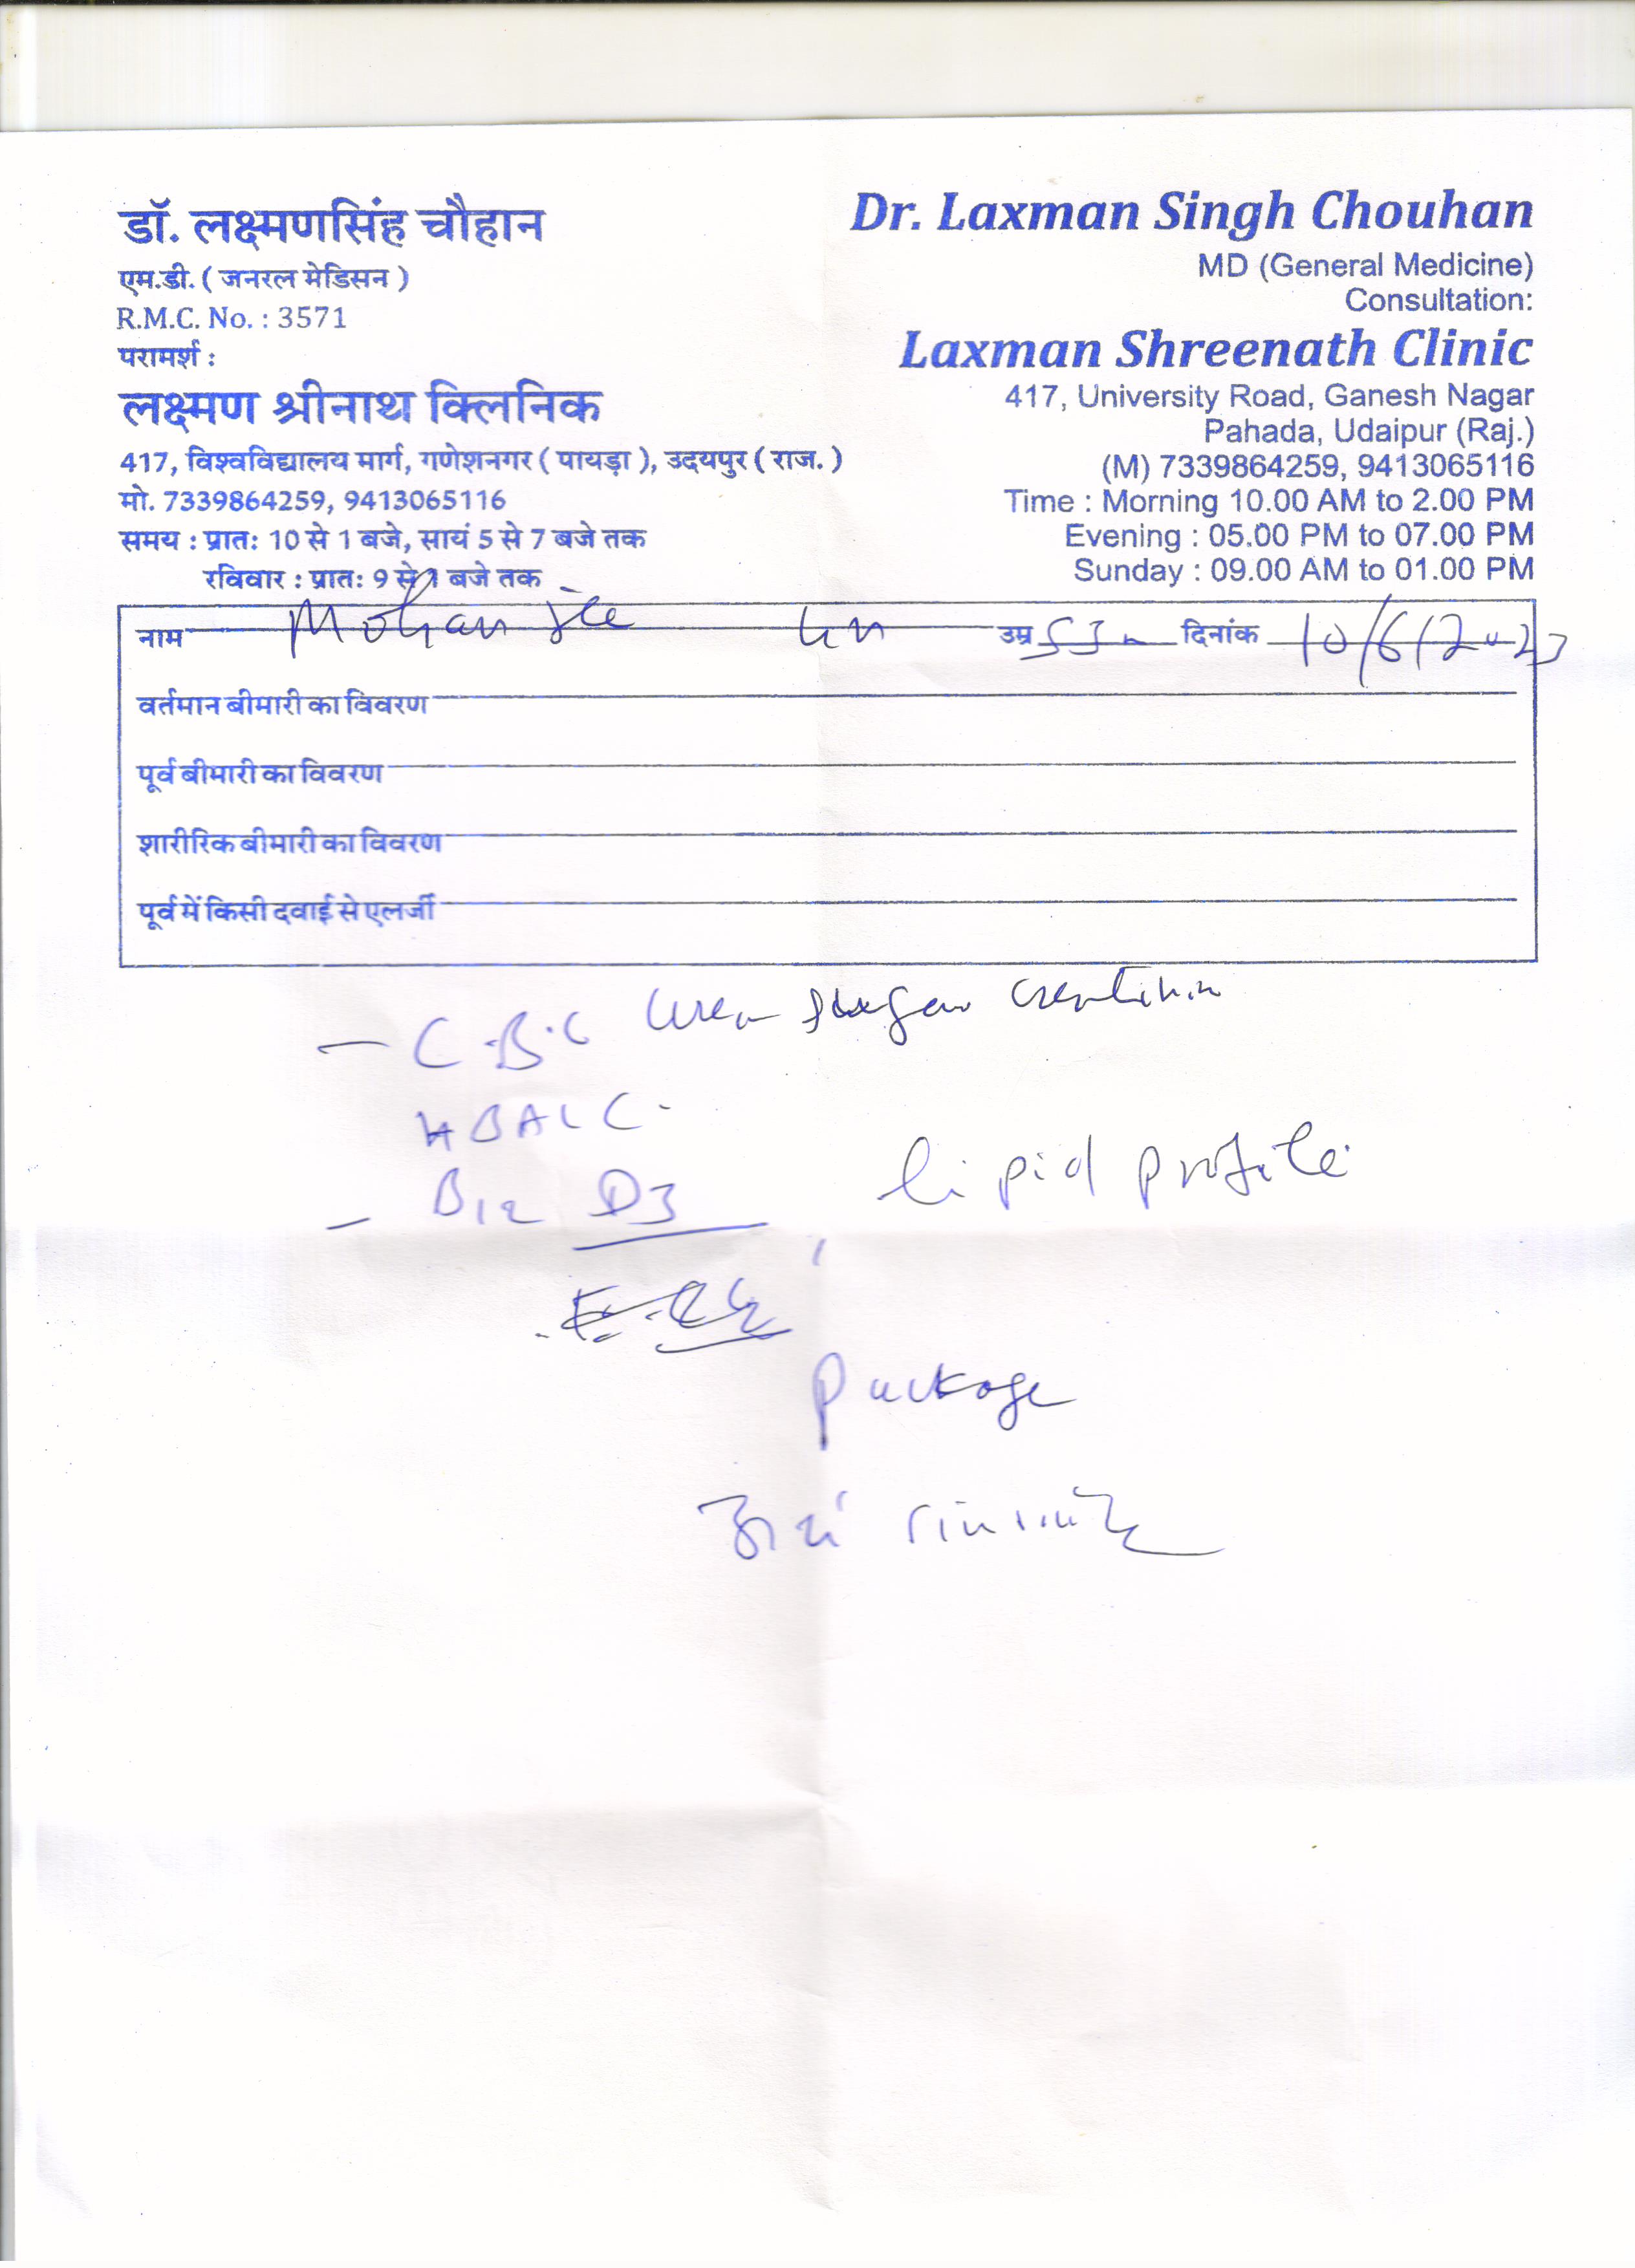 डॉ. लक्ष्मणसिंह चौहान
एम.डी. ( जनरल मेडिसन )
R.M.C. No. : 3571
परामर्श :
लक्ष्मण श्रीनाथ क्लिनिक
417, विश्वविद्यालय मार्ग, गणेशनगर ( पायड़ा ), उदयपुर ( राज. )
मो. 7339864259, 9413065116
समय : प्रातः 10 से 1 बजे, सायं 5 से 7 बजे तक
रविवार : प्रातः 9 से 1 बजे तक
Dr. Laxman Singh Chouhan
MD (General Medicine)
Consultation:
Laxman Shreenath Clinic
417, University Road, Ganesh Nagar
Pahada, Udaipur (Raj.)
(M) 7339864259, 9413065116
Time : Morning 10.00 AM to 2.00 PM
Evening : 05.00 PM to 07.00 PM
Sunday : 09.00 AM to 01.00 PM
नाम Mohan उम्र दिनांक 10/6/2023
वर्तमान बीमारी का विवरण
पूर्व बीमारी का विवरण
शारीरिक बीमारी का विवरण
पूर्व में किसी दवाई से एलर्जी
- C.B.C Urea creatinin
HBA1C
- B12 D3 lipid profile
Package